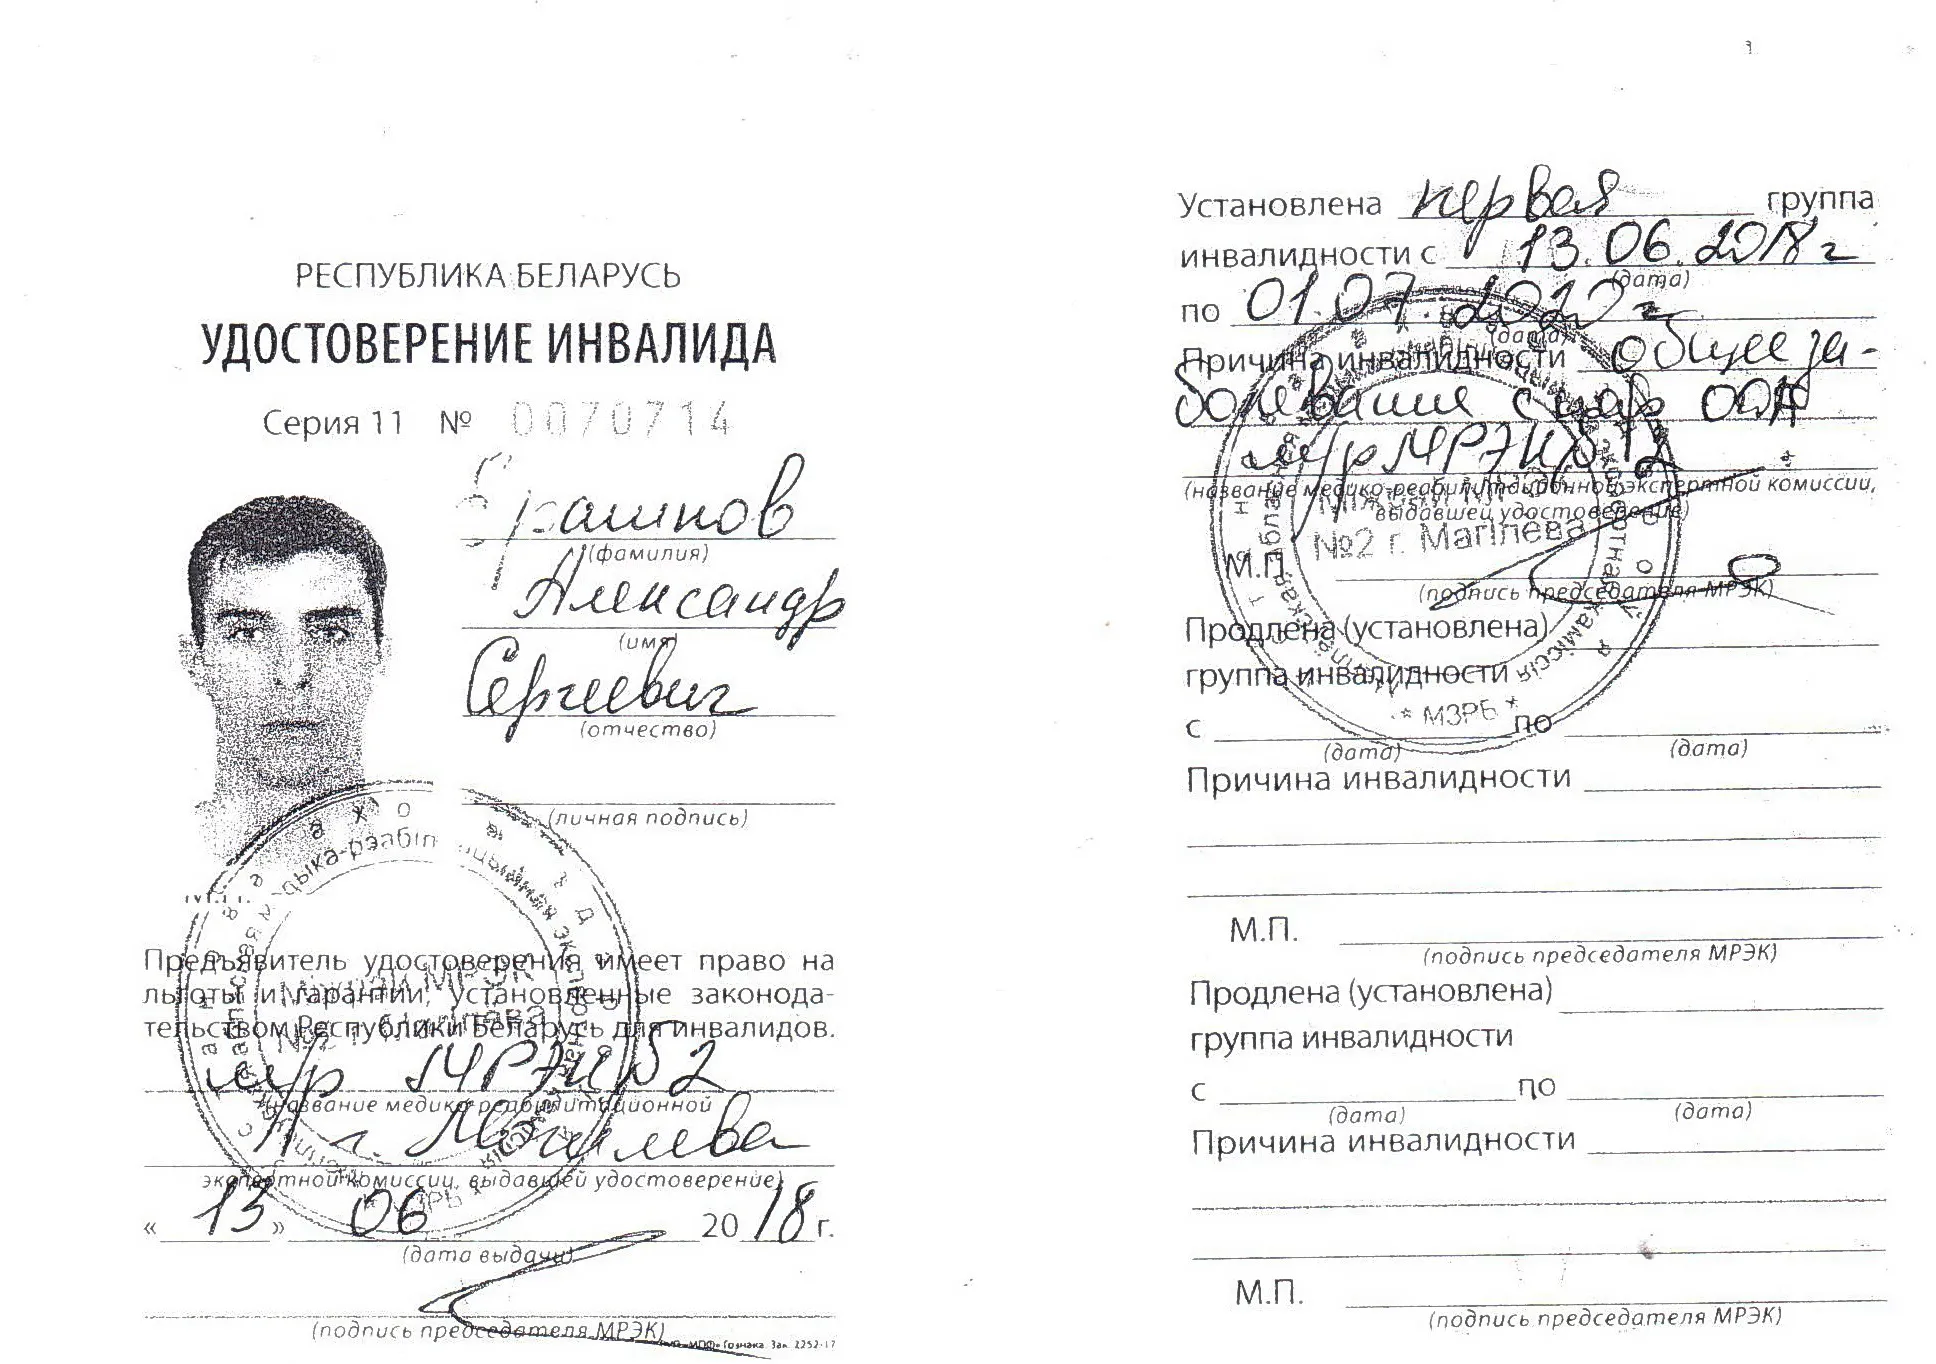 РЕСПУБЛИКА БЕЛАРУСЬ
УДОСТОВЕРЕНИЕ ИНВАЛИДА
Серия 11 № 0070714
(фамилия)
Александр
(имя)
Сергеевич
(отчество)
(личная подпись)
М.П.
Предъявитель удостоверения имеет право на
льготы и гарантии, установленные законода-
тельством Республики Беларусь для инвалидов.
м/р МРЭК №2
(название медико-реабилитационной
г. Могилева
экспертной комиссии, выдавшей удостоверение)
«13» 06 2018 г.
(дата выдачи)
(подпись председателя МРЭК)
Гознака. Зак. 2252-17
Установлена первая группа
инвалидности с 13.06.2018 г
(дата)
по 01.07.2020 г
(дата)
Причина инвалидности общее за-
болевание с
м/р МРЭК №2
(название медико-реабилитационной экспертной комиссии,
выдавшей удостоверение)
№2 г. Магілёва
М.П.
(подпись председателя МРЭК)
Продлена (установлена)
группа инвалидности
* МЗРБ *
с по
(дата) (дата)
Причина инвалидности
М.П.
(подпись председателя МРЭК)
Продлена (установлена)
группа инвалидности
с по
(дата) (дата)
Причина инвалидности
М.П.
(подпись председателя МРЭК)